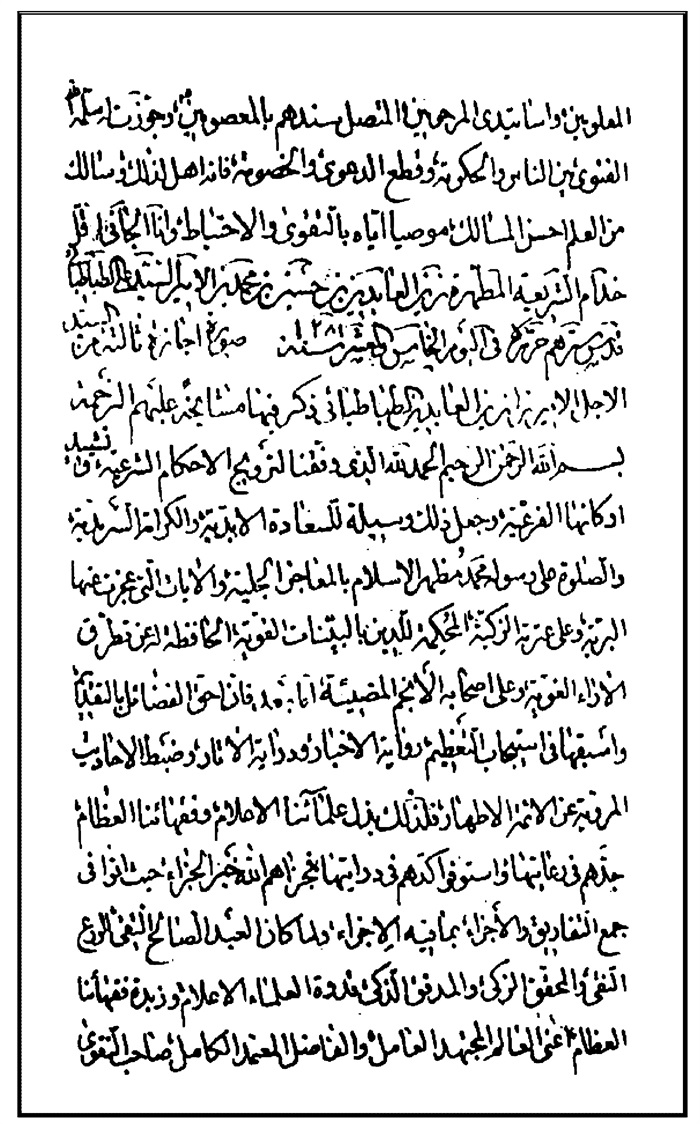 المعلومين واساتيدى المرحومين المتصل سندهم بالمعصومين وجوزت له سلمه الله
الفتوى بين الناس والحكومة وقطع الدعوى والخصومة فانه اهل لذلك وسالك
من العلم احسن المسالك موصيا اياه بالتقوى والاحتياط وانا الجانى اقل
خدام الشريعة المطهرة زين العابدين بن حسين بن محمد بن الامير السيد على الطباطبائى
قدس سرهم حرره فى اليوم الخامس العشر سنة ١٢٨١ صورة اجازة ثالثة من السيد
الاجل الاميرزا زين العابدين الطباطبائى ذكر فيها مشايخه عليهم الرحمة
بسم الله الرحمن الرحيم الحمد لله الذى وفقنا لترويج الاحكام الشرعية وتشييد
اركانها الفرعية وجعل ذلك وسيلة للسعادة الابدية والكرامة السرمدية
والصلوة على رسوله محمد مظهر الاسلام بالمعاجز الجلية والايات التى عجزت عنها
البرية وعلى عترته الزكية المحكمة للدين بالبينات القوية الحافظة له عن تطرق
الاراء الغوية وعلى اصحابه الانجم المضيئة اما بعد فان احق الفضائل بالتقديم
واسبقها فى استيجاب التعظيم رواية الاخبار ودراية الاثار وضبط الاحاديث
المروية عن الائمة الاطهار فلذلك بذل علمائنا الاعلام وفقهائنا العظام
جدهم فى رعايتها واستوفوا كدهم فى درايتها فجزاهم الله خير الجزاء حيث اتوا فى
جمع التفاريق والاجزاء بما فيه الاجزاء ولما كان العبد الصالح التقى الورع
النقى والمحقق الزكى والمدقق الذكى قدوة العلماء الاعلام وزبدة فقهائنا
العظام اعنى العالم المجتهد العامل والفاضل المعتمد الكامل صاحب التقوى